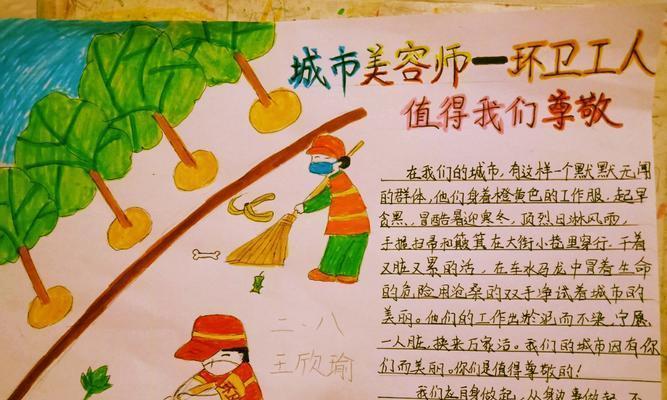 城市美容师一环卫工人
值得我们尊敬
在我们的城市,有这样一个默默无闻
的群体,他们身着橙黄色的工作服,起早
贪黑,冒酷暑迎寒冬,顶烈日淋风雨,
手握扫帚和簸箕在大街小巷里穿行,干着
又脏又累的活,在车水马龙中冒着生命
的危险用沧桑的双手净拭着城市的
美丽。他们的工作出於泥而不染,宁愿
一人脏,换来万家洁。我们的城市因有你
们而美丽。你们是值得尊敬的!
我们应自身做起,从身边事做起,不
二、八
王欣瑜